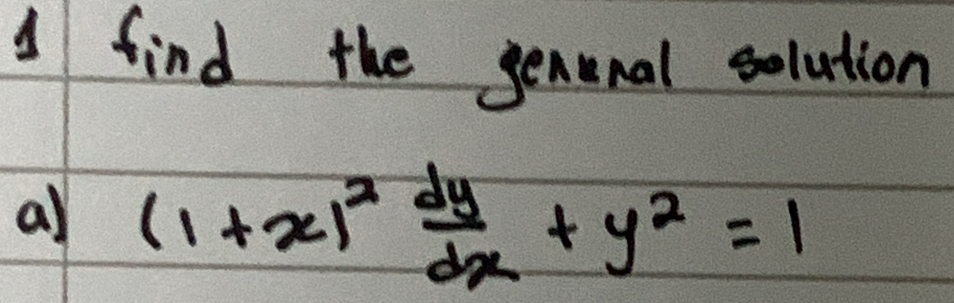 1 find the general solution
a) (1+x)² dy/dx + y² = 1